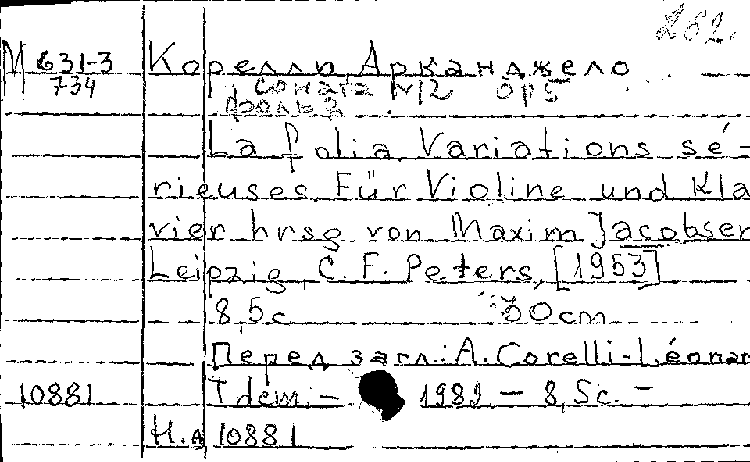 282.
М 631-3 Корелли Арканджело
734 соната №12 op5
фолья
La folia Variations sé-
rieuses Für Violine und Kla
vier hrsg von Maxim Jacobsen
Leipzig, C. F. Peters, [1953]
8,5с 30cm
Перед загл.: A. Corelli-Léonar
10881 Idem.- 1982 - 8,5с. -
Н.д 10881